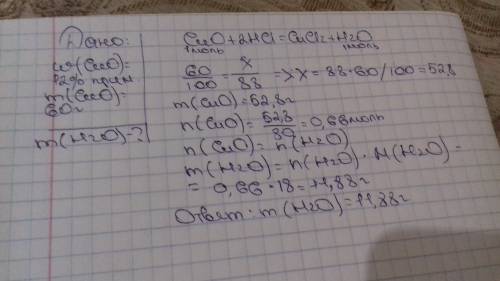 Дано:
ω(CuO)=
12% прим
m(CuO)=
60г
m(H2O)-?
CuO+2HCl=CuCl2+H2O
1моль 1моль
60/100 = x/88 => x=88·60/100=52,8
m(CuO)=52,8г
n(CuO)=52,8/80=0,66моль
n(CuO)=n(H2O)
m(H2O)=n(H2O)·M(H2O)=
=0,66·18=11,88г
Ответ: m(H2O)=11,88г